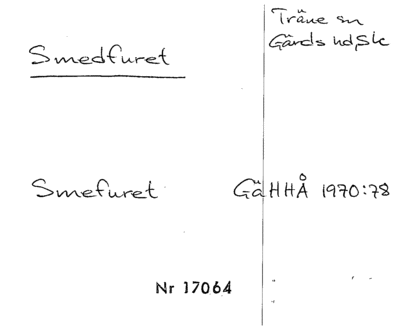 Smedfuret
Träne sn
Gärds hd, Sk
Smefuret Gä HHÅ 1970:78
Nr 17064